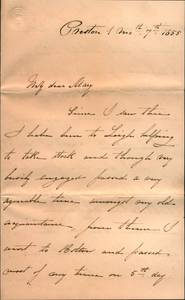 Preston 1 Mo. 7th 1855
My dear May
Since I saw thee
I have been to Slough
to take stock and though very
busily engaged passed a very
agreeable time amongst my old
acquaintance, from thence I
went to Bolton and passed
most of my time on 5th day